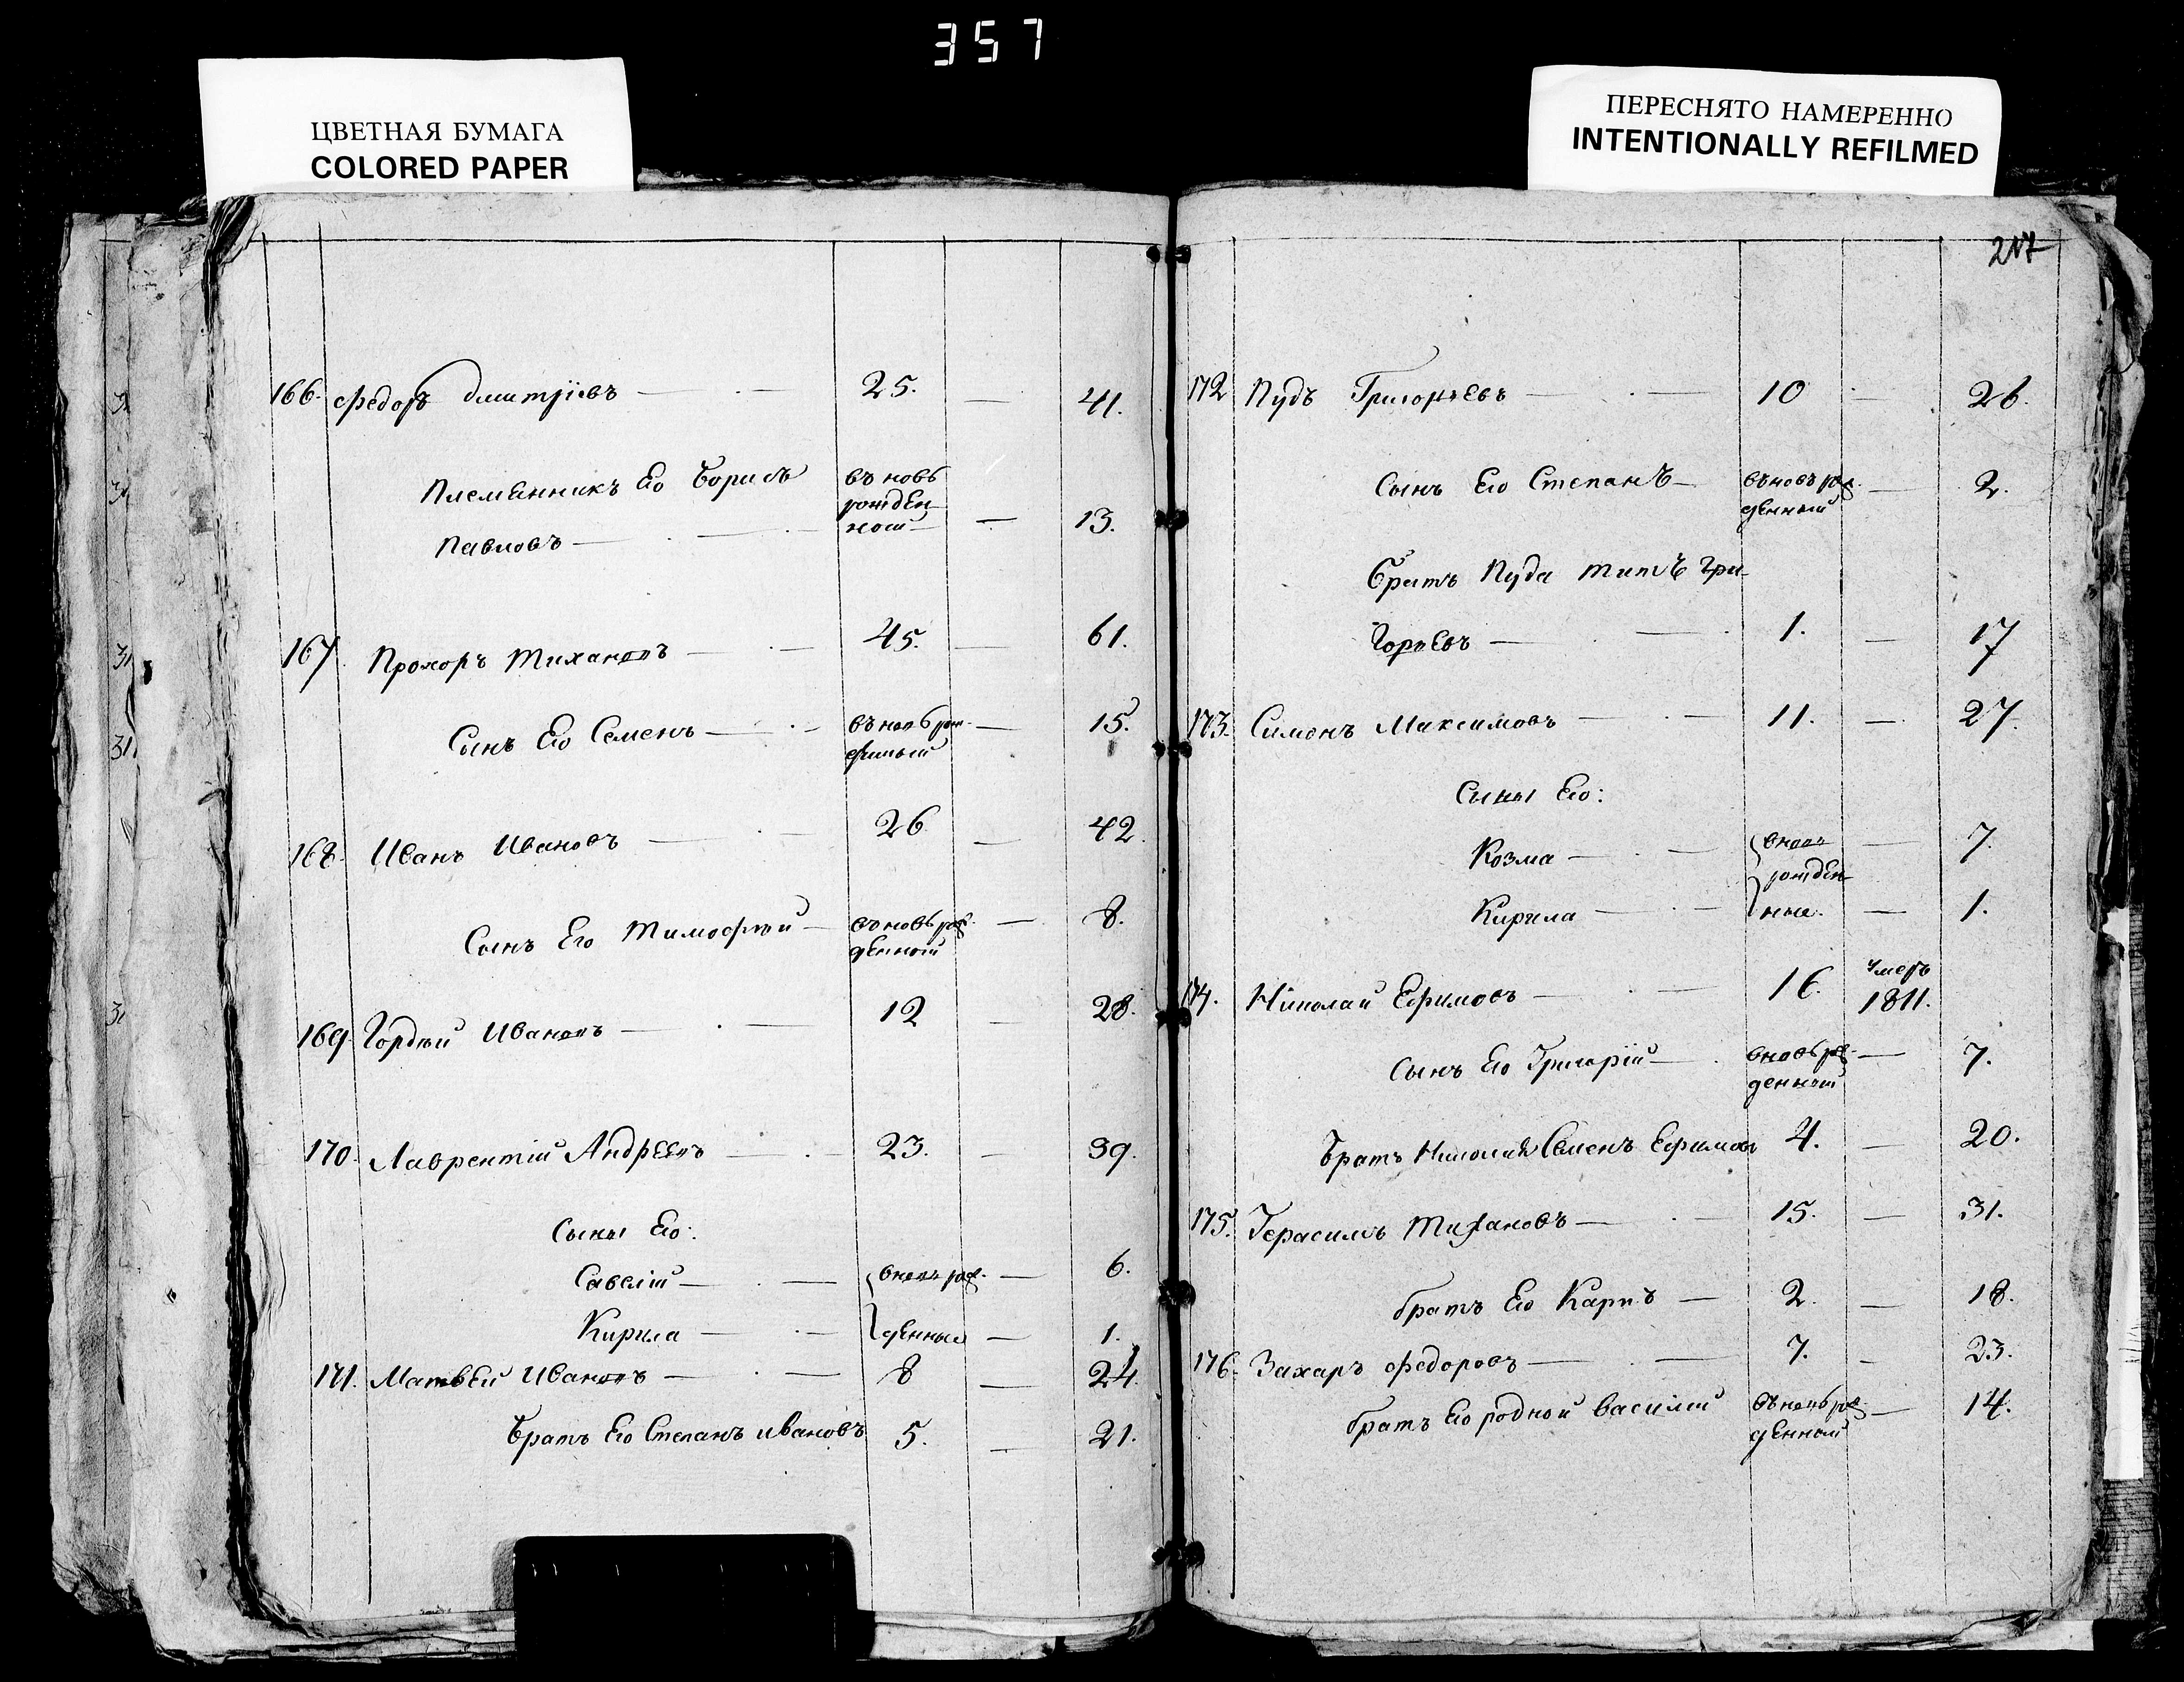 357
ЦВЕТНАЯ БУМАГА
COLORED PAPER
ПЕРЕСНЯТО НАМЕРЕННО
INTENTIONALLY REFILMED
166. Федоръ Дмитріевъ — 25. — 41.
Племянникъ Его Борисъ въ новь
рожден-
Павловъ — ной — 13.
167. Прохоръ Тихановъ — 45. — 61.
Сынъ Его Семенъ — въ новь рож- — 15.
168. Иванъ Ивановъ — 26 — 42.
Сынъ Его Тимофѣй — въновь рож- — 8.
денной
169. Гордѣй Ивановъ — 12 — 28.
170. Лаврентій Андреевъ — 23. — 39.
Сыны Его:
Савелій — вновь рож- — 6.
Кирила — денные — 1.
171. Матвей Ивановъ — 8 — 24.
Братъ Его Степанъ Ивановъ 5. — 21.
217
172 Пудъ Григорьевъ — 10 — 26.
Сынъ Его Степанъ — въновь рож- — 2.
денный
Братъ Пуда Титъ Гри-
горьевъ — 1. — 17
173. Симонъ Максимовъ — 11. — 27.
Сыны Его:
Козма — вновь — 7.
рожден-
Кирила — ные. — 1.
174. Николай Ефимовъ — 16. умеръ
1811.
Сынъ Его Григорій — вновь рож- — 7.
денный
Братъ Николая Семенъ Ефимовъ 4. — 20.
175. Герасимъ Тихановъ — 15. — 31.
братъ Его Карпъ — 2. — 18.
176. Захаръ Федоровъ — 7. — 23.
братъ Его родной Василій въновь рож- — 14.
денной